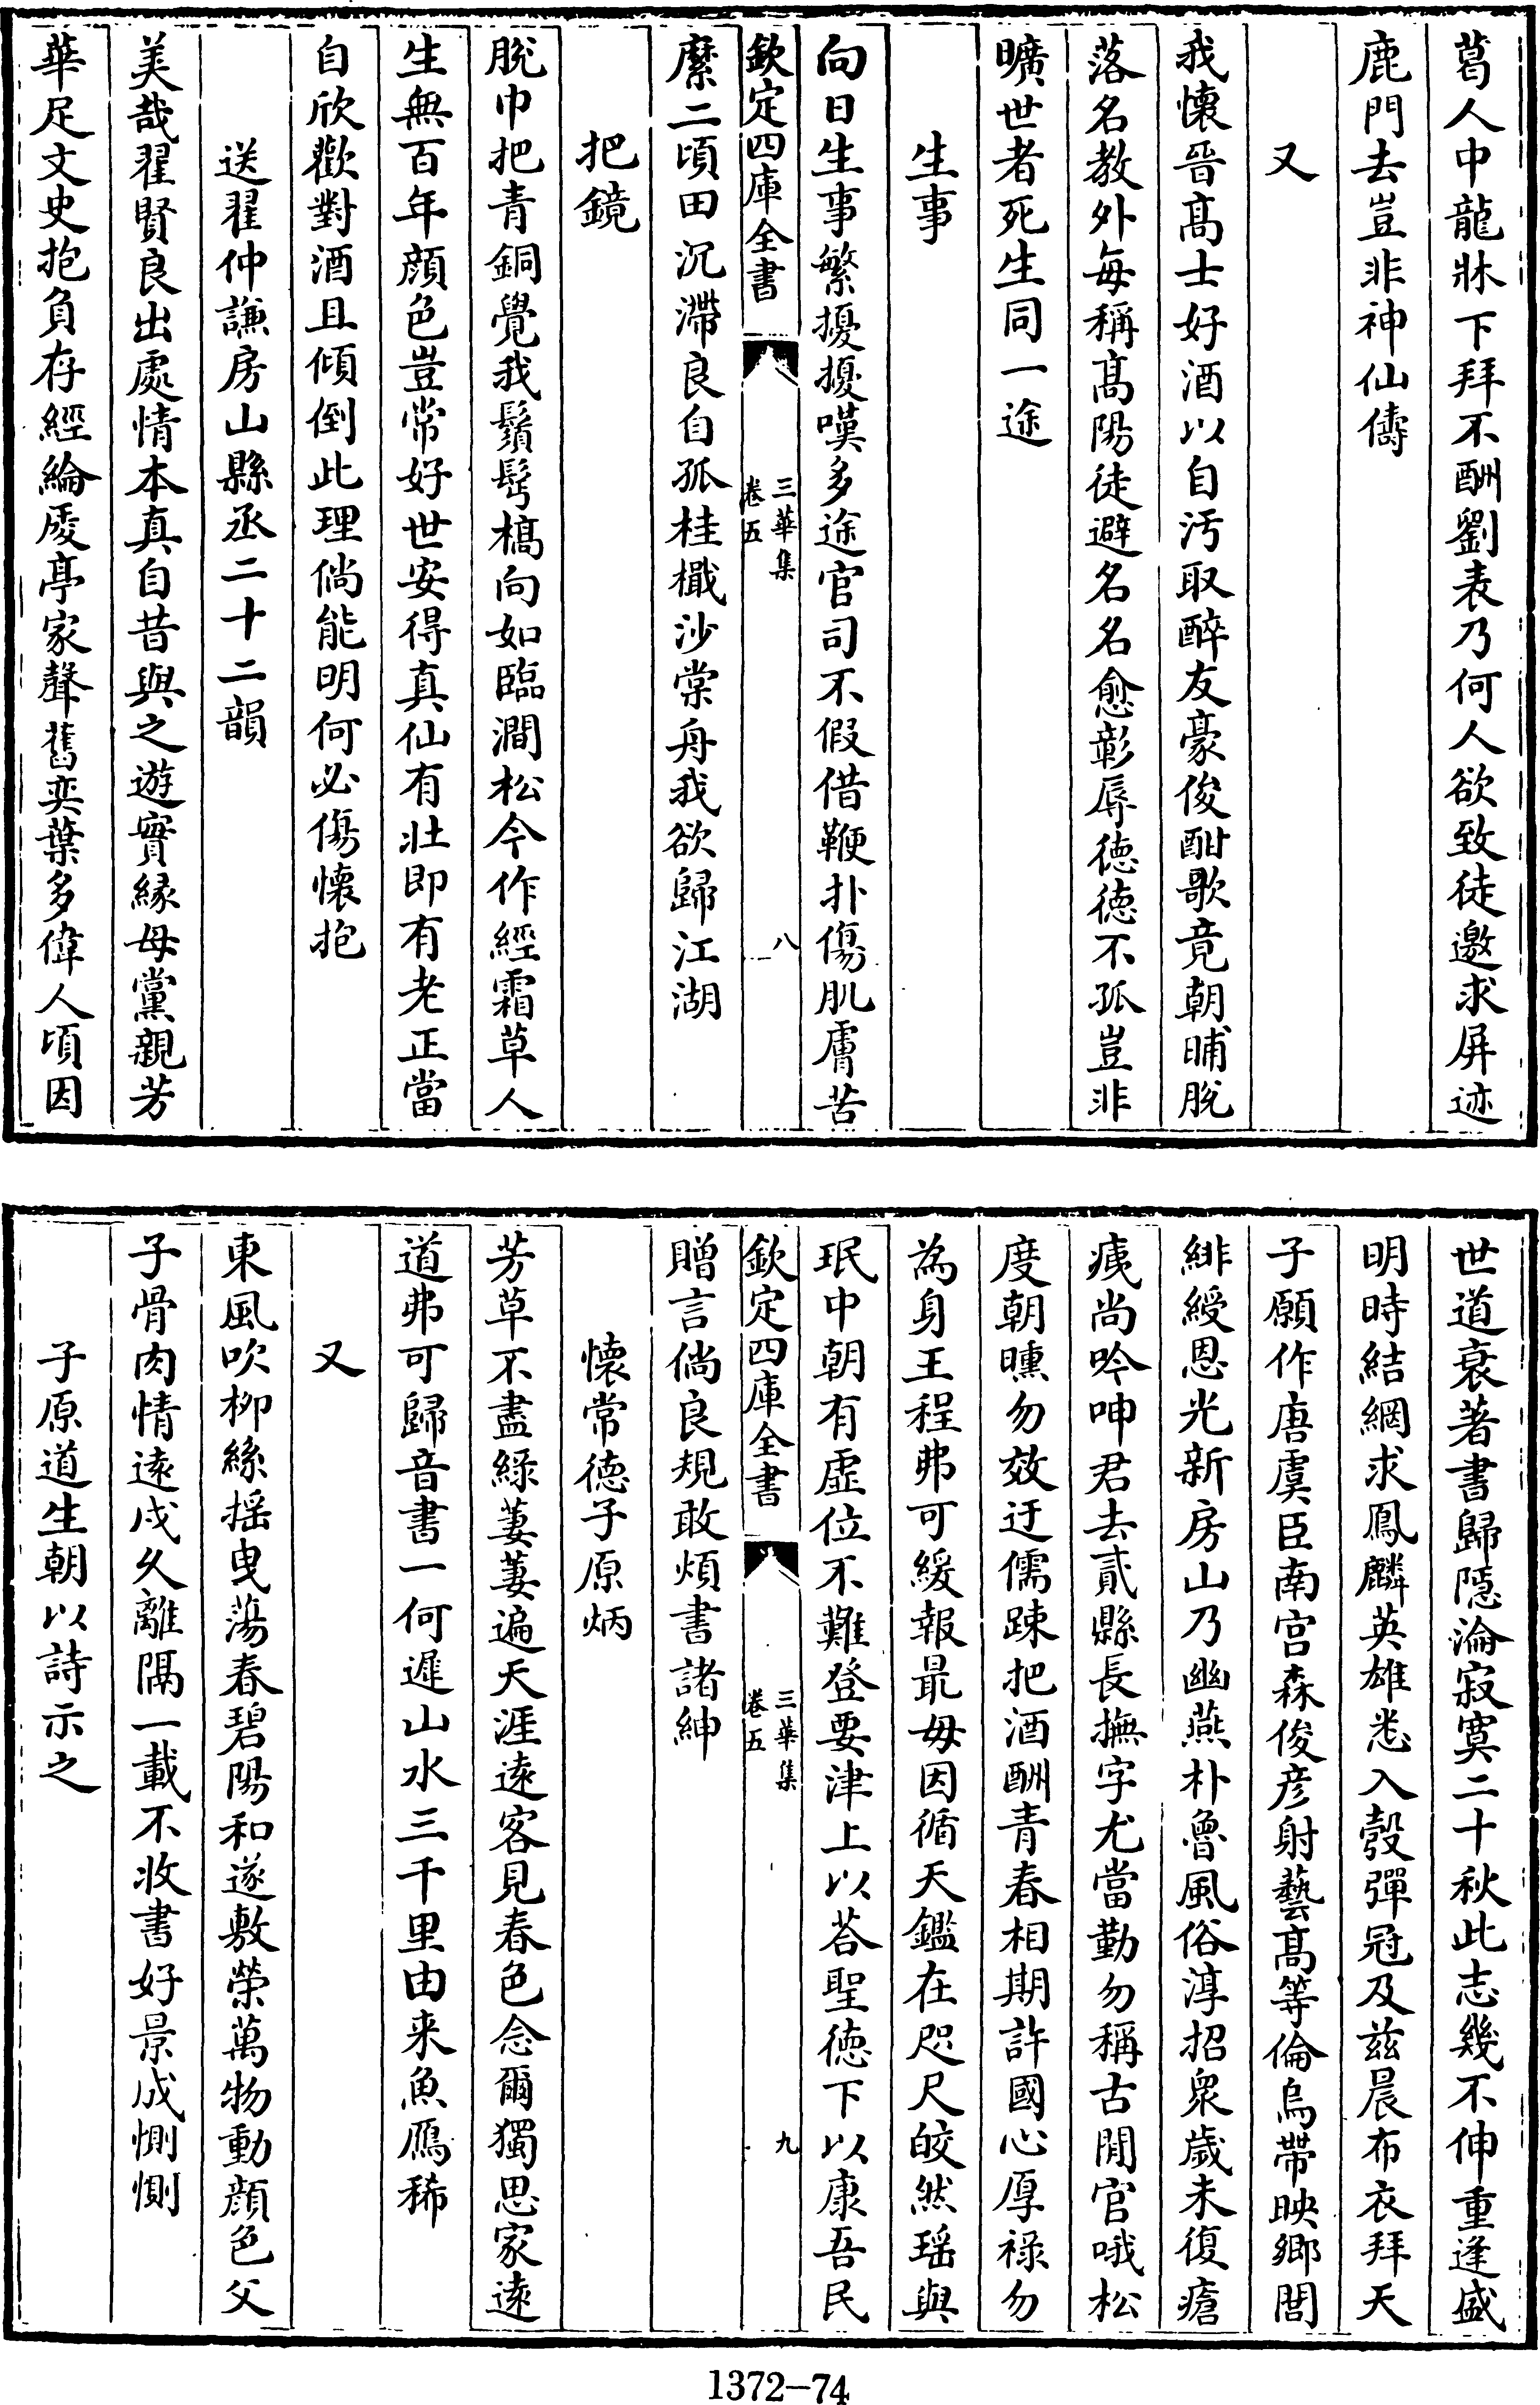 葛人中龍牀下拜不酬劉表乃何人欲致徒邀求屏迹
鹿門去豈非神仙儔
又
我懷晉髙士好酒以自汚取醉友豪俊酣歌竟朝晡脫
落名教外毎稱髙陽徒避名名愈彰辱徳徳不孤豈非
曠世者死生同一途
生事
向日生事繁擾擾嘆多途官司不假借鞭扑傷肌膚苦
欽定四庫全書
三華集
卷五
八
縻二頃田沉滯良自孤桂檝沙棠舟我欲歸江湖
把鏡
脫巾把青銅覺我鬚髩槁向如臨澗松今作經霜草人
生無百年顔色豈常好世安得真仙有壯即有老正當
自欣歡對酒且傾倒此理倘能明何必傷懷抱
送翟仲謙房山縣丞二十二韻
美哉翟賢良出處情本真自昔與之遊實縁母黨親芳
華足文史抱負存經綸戹亭家聲舊奕葉多偉人頃因
世道衰著書歸隱淪寂寞二十秋此志幾不伸重逢盛
明時結網求鳳麟英雄悉入彀彈冠及兹晨布衣拜天
子願作唐虞臣南宫森俊彦射藝髙等倫烏帶映鄉閭
緋綬恩光新房山乃幽燕朴魯風俗淳招衆歲未復瘡
痍尚吟呻君去貳縣長撫字尤當勤勿稱古閒官哦松
度朝曛勿效迂儒踈把酒酬青春相期許國心厚禄勿
為身王程弗可緩報最毋因循天鑑在咫尺皎然瑶與
珉中朝有虚位不難登要津上以荅聖徳下以康吾民
欽定四庫全書
三華集
卷五
九
贈言倘良規敢煩書諸紳
懷常徳子原炳
芳草不盡緑萋萋遍天涯逺客見春色念爾獨思家逺
道弗可歸音書一何遲山水三千里由来魚鴈稀
又
東風吹柳絲揺曳蕩春碧陽和遂敷榮萬物動顔色父
子骨肉情逺戍久離隔一載不收書好景成惻惻
子原道生朝以詩示之
1372-74